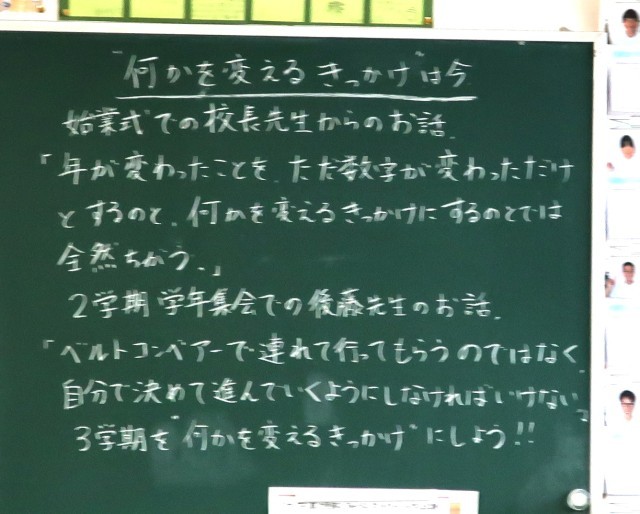 "何かを変えるきっかけ"は今
始業式での校長先生からのお話。
「年が変わったことを、ただ数字が変わっただけ
とするのと、何かを変えるきっかけにするのとでは
全然ちがう。」
2学期学年集会での後藤先生のお話。
「ベルトコンベアーで連れて行ってもらうのではなく、
自分で決めて進んでいくようにしなければいけない。」
3学期を"何かを変えるきっかけ"にしよう!!